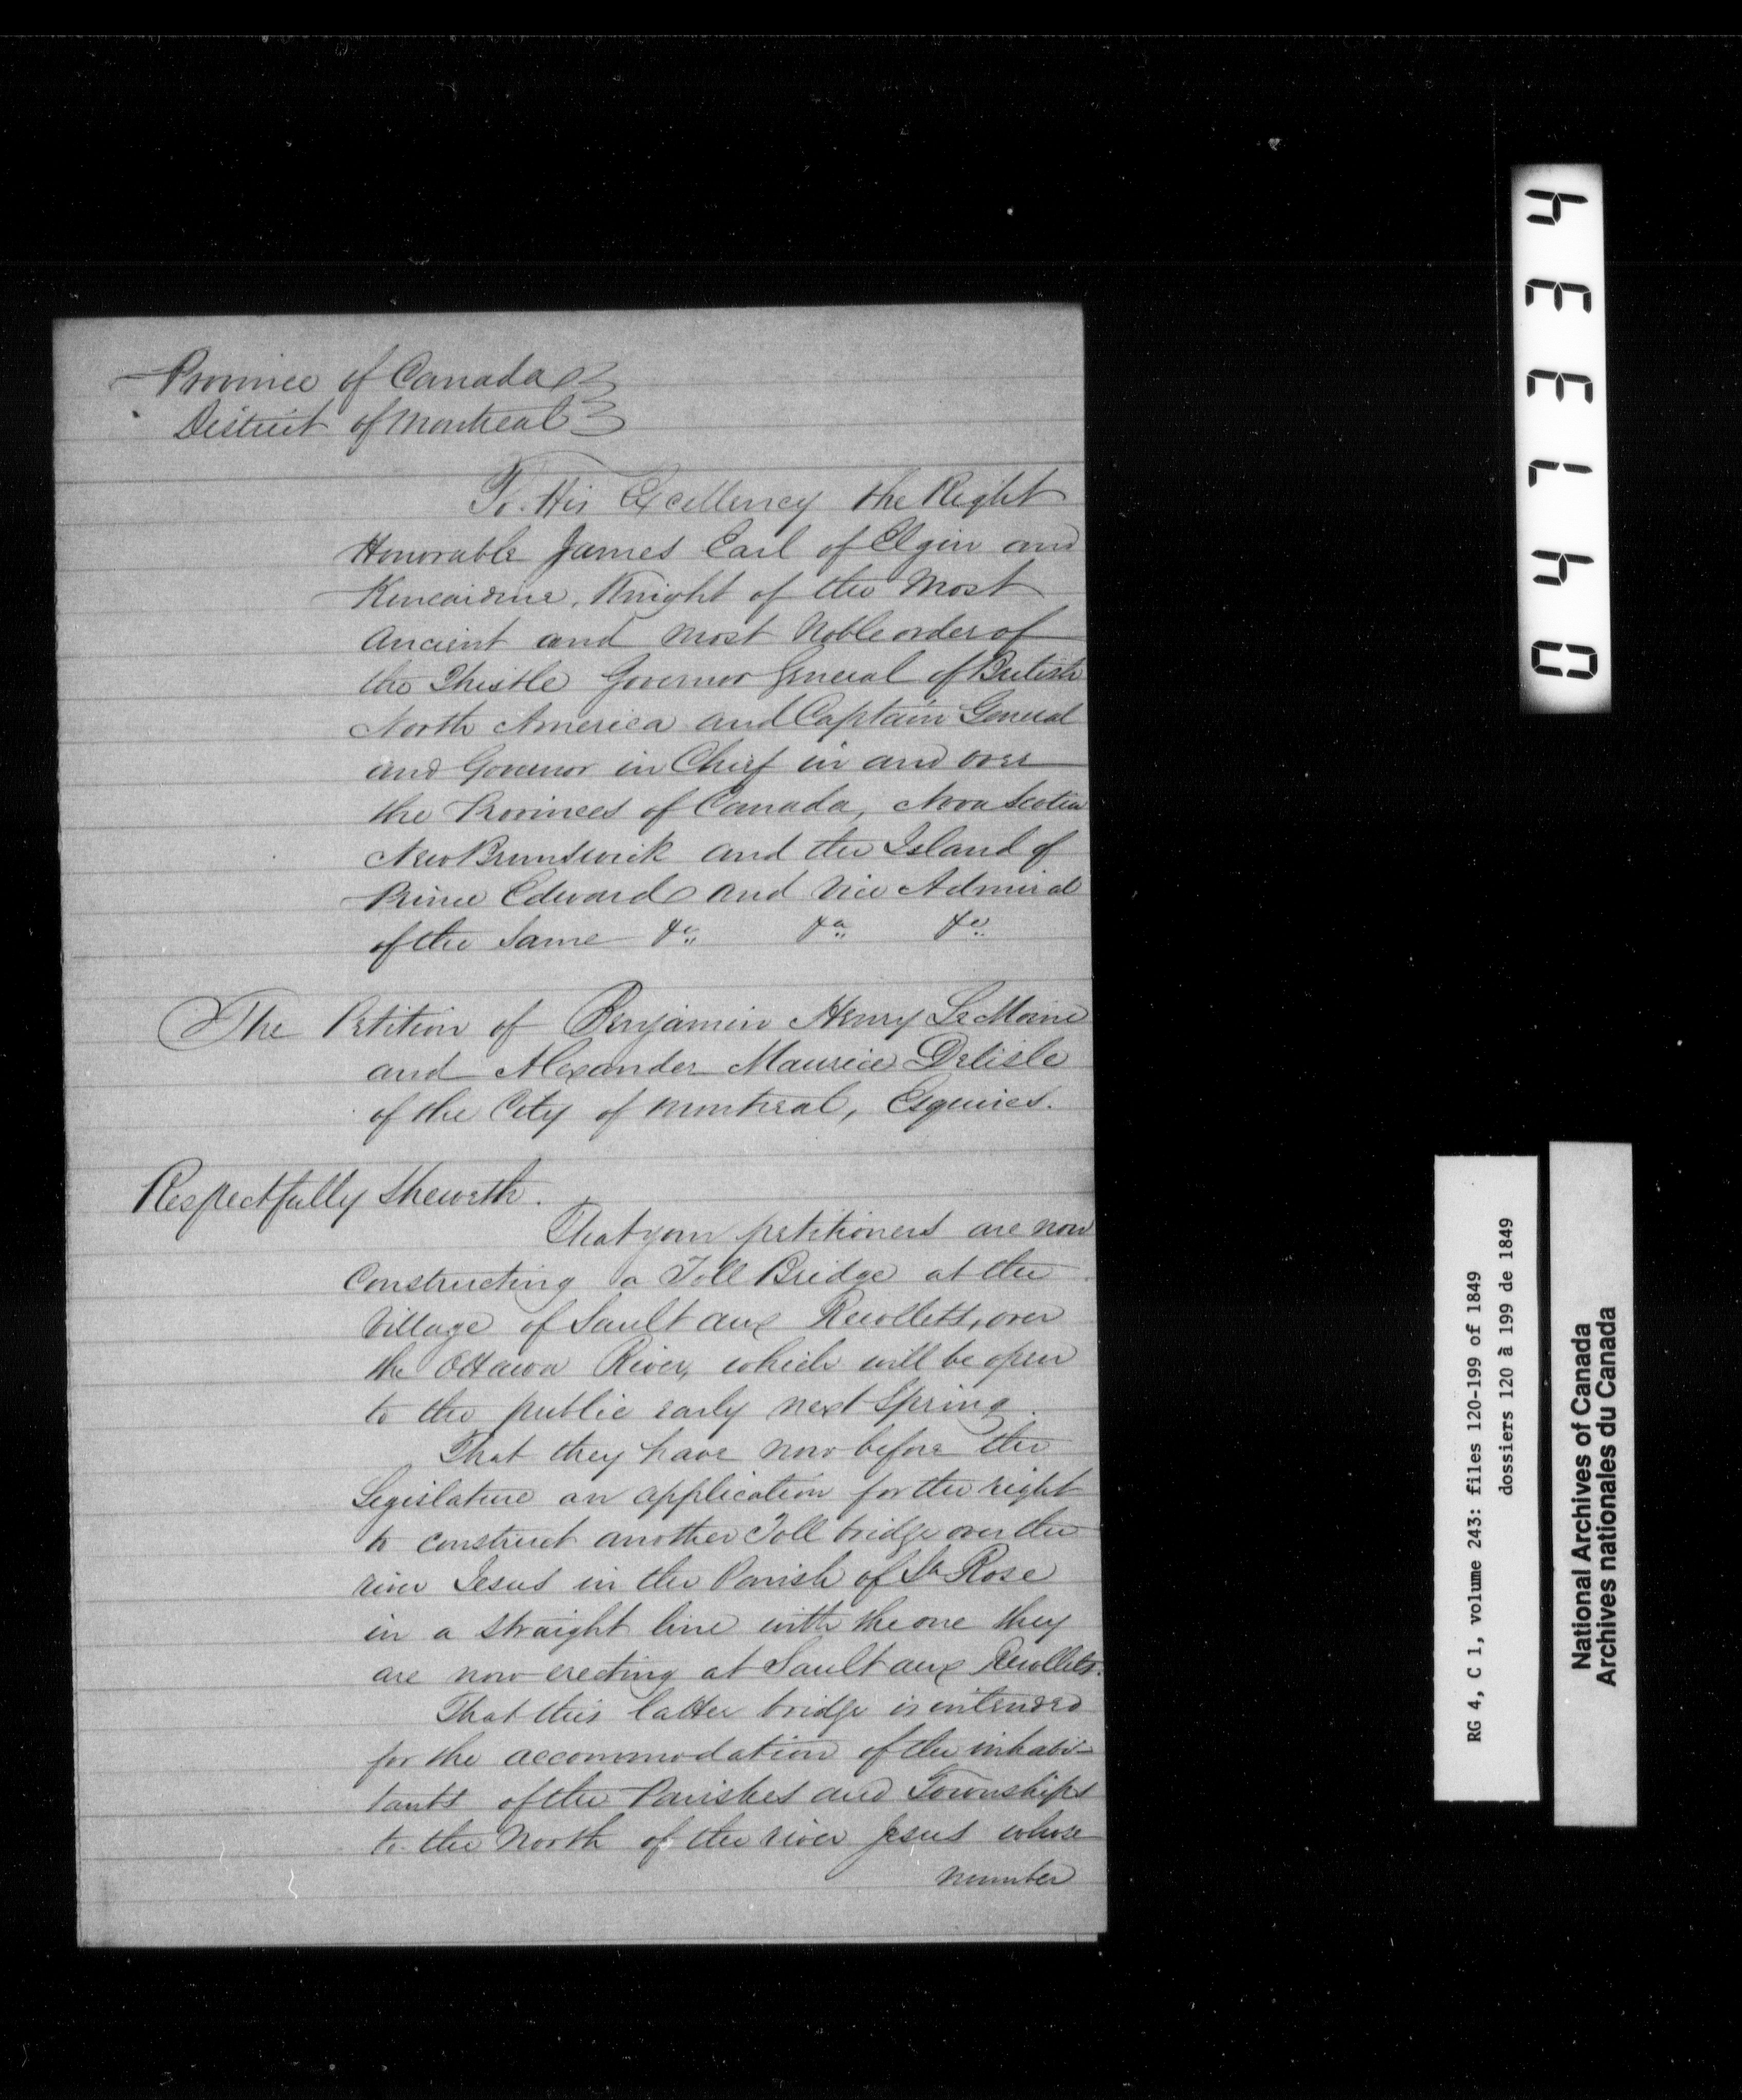 Province of Canada
District of Montreal
To His Excellency the Right
Honorable James Earl of Elgin and
Kincardine, Knight of the Most
Ancient and Most Noble order of
the Thistle Governor General of British
North America and Captain General
and Governor in Chief in and over
the Provinces of Canada, Nova Scotia
New Brunswick and the Island of
Prince Edward and Vice Admiral
of the Same &c &c &c
The Petition of Benjamin Henry LeMoine
and Alexander Maurice Delisle
of the City of Montreal, Esquires.
Respectfully Sheweth.
That your petitioners are now
Constructing a Toll Bridge at the
Village of Sault aux Recollets, over
the Ottawa River, which will be open
to the public early next Spring.
That they have now before the
Legislature an application for the right
to construct another Toll bridge over the
river Jesus in the Parish of Ste Rose
in a straight line with the one they
are now erecting at Sault aux Recollets.
That this latter bridge is intended
for the accommodation of the inhabi-
tants of the Parishes and Townships
to the North of the river Jesus whose
number
047334
RG 4, C 1, volume 243: files 120-199 of 1849
dossiers 120 à 199 de 1849
National Archives of Canada
Archives nationales du Canada